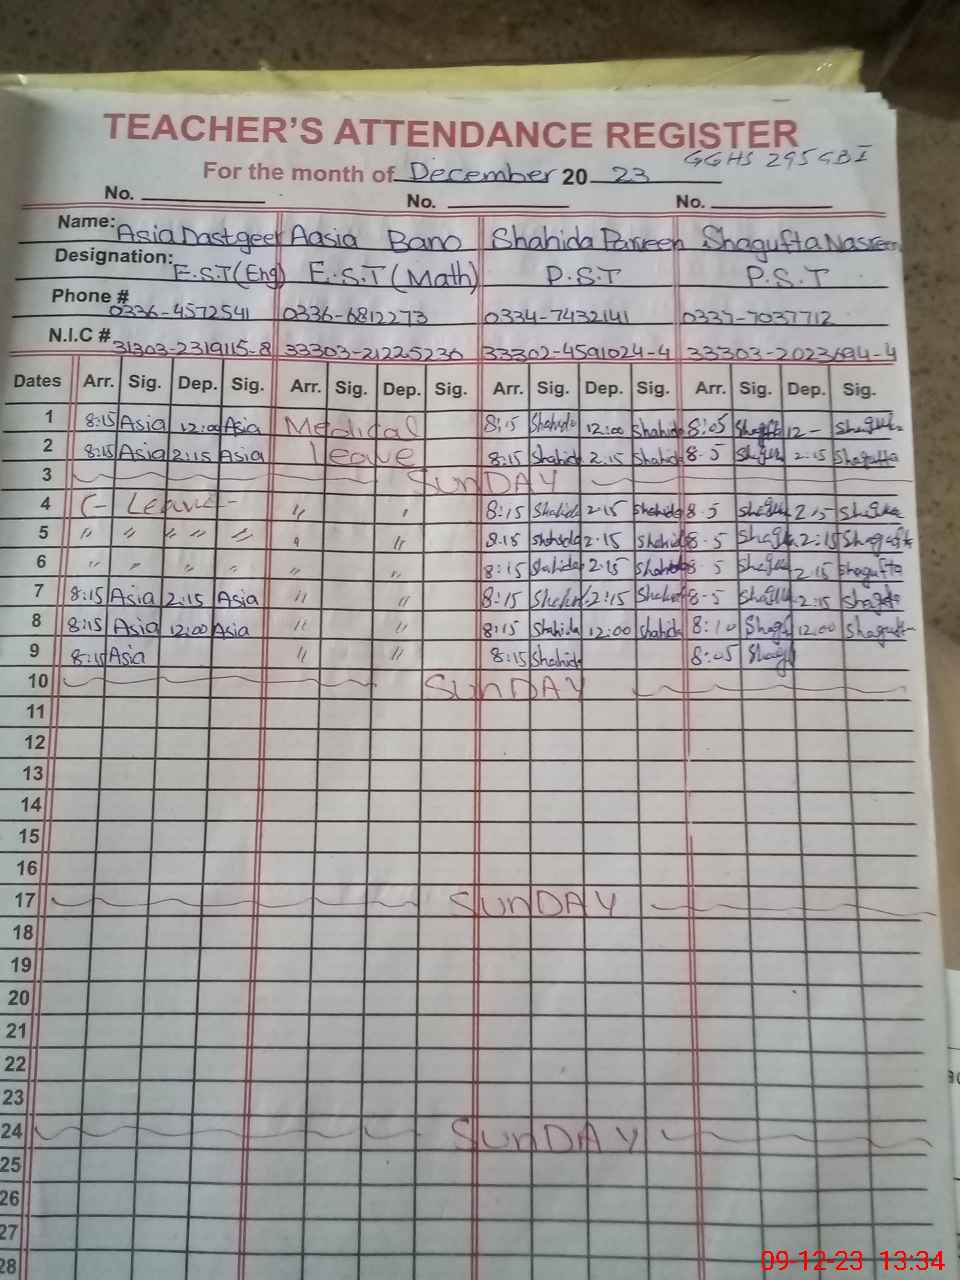 TEACHER'S ATTENDANCE REGISTER
GGHS 295 GB I
For the month of December 20 23
No. No. No.
Name: Asia Dastgeer Aasia Bano Shahida Parveen Shagufta Nasreen
Designation: E.S.T(Eng) E.S.T(Math) P.S.T P.S.T
Phone # 0336-4572541 0336-6812273 0334-7432141 0337-7037712
N.I.C # 31303-2319115-8 33303-21225236 33302-4591024-4 33303-2023694-4
Dates Arr. Sig. Dep. Sig. Arr. Sig. Dep. Sig. Arr. Sig. Dep. Sig. Arr. Sig. Dep. Sig.
1 8:15 Asia 12:00 Asia Medical 8:15 Shahida 12:00 Shahida 8:05 Shagufta 12- Shagufta
2 8:15 Asia 2:15 Asia Leave 8:15 Shahida 2:15 Shahida 8-5 2:15 Shagufta
3 SUNDAY
4 C- Leave- " " 8:15 Shahida 2:15 Shahida 8-5 2:15
5 " " " " " " " 8:15 Shahida 2:15 Shahida 8-5 2:15 Shagufta
6 " " " " " " 8:15 Shahida 2:15 Shahida 8-5 2:15 Shagufta
7 8:15 Asia 2:15 Asia " " 8:15 2:15 8-5 2:15 Shagufta
8 8:15 Asia 12:00 Asia " " 8:15 Shahida 12:00 Shahida 8:10 12:00 Shagufta
9 8:15 Asia " " 8:15 Shahida 8:05
10 SUNDAY
11
12
13
14
15
16
17 SUNDAY
18
19
20
21
22
23
24 SUNDAY
25
26
27
28
09-12-23 13:34